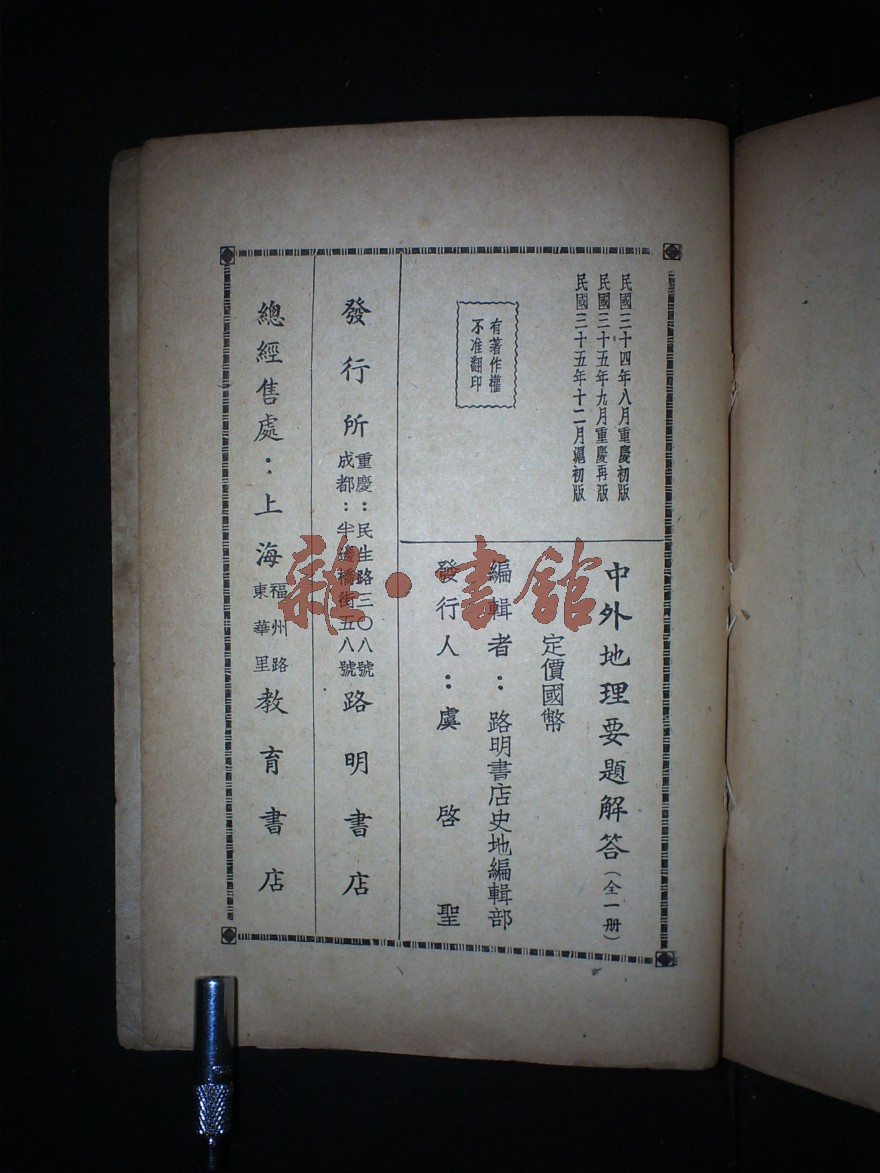 民國三十四年八月重慶初版
民國三十五年九月重慶再版
民國三十五年十二月滬初版
有著作權
不准翻印
中外地理要題解答（全一册）
定價國幣
編輯者：路明書店史地編輯部
發行人：虞啓聖
發行所
重慶：民生路三〇八號
成都：半邊橋街五八號
路明書店
總經售處：上海
福州路
東華里
教育書店
雜·書館